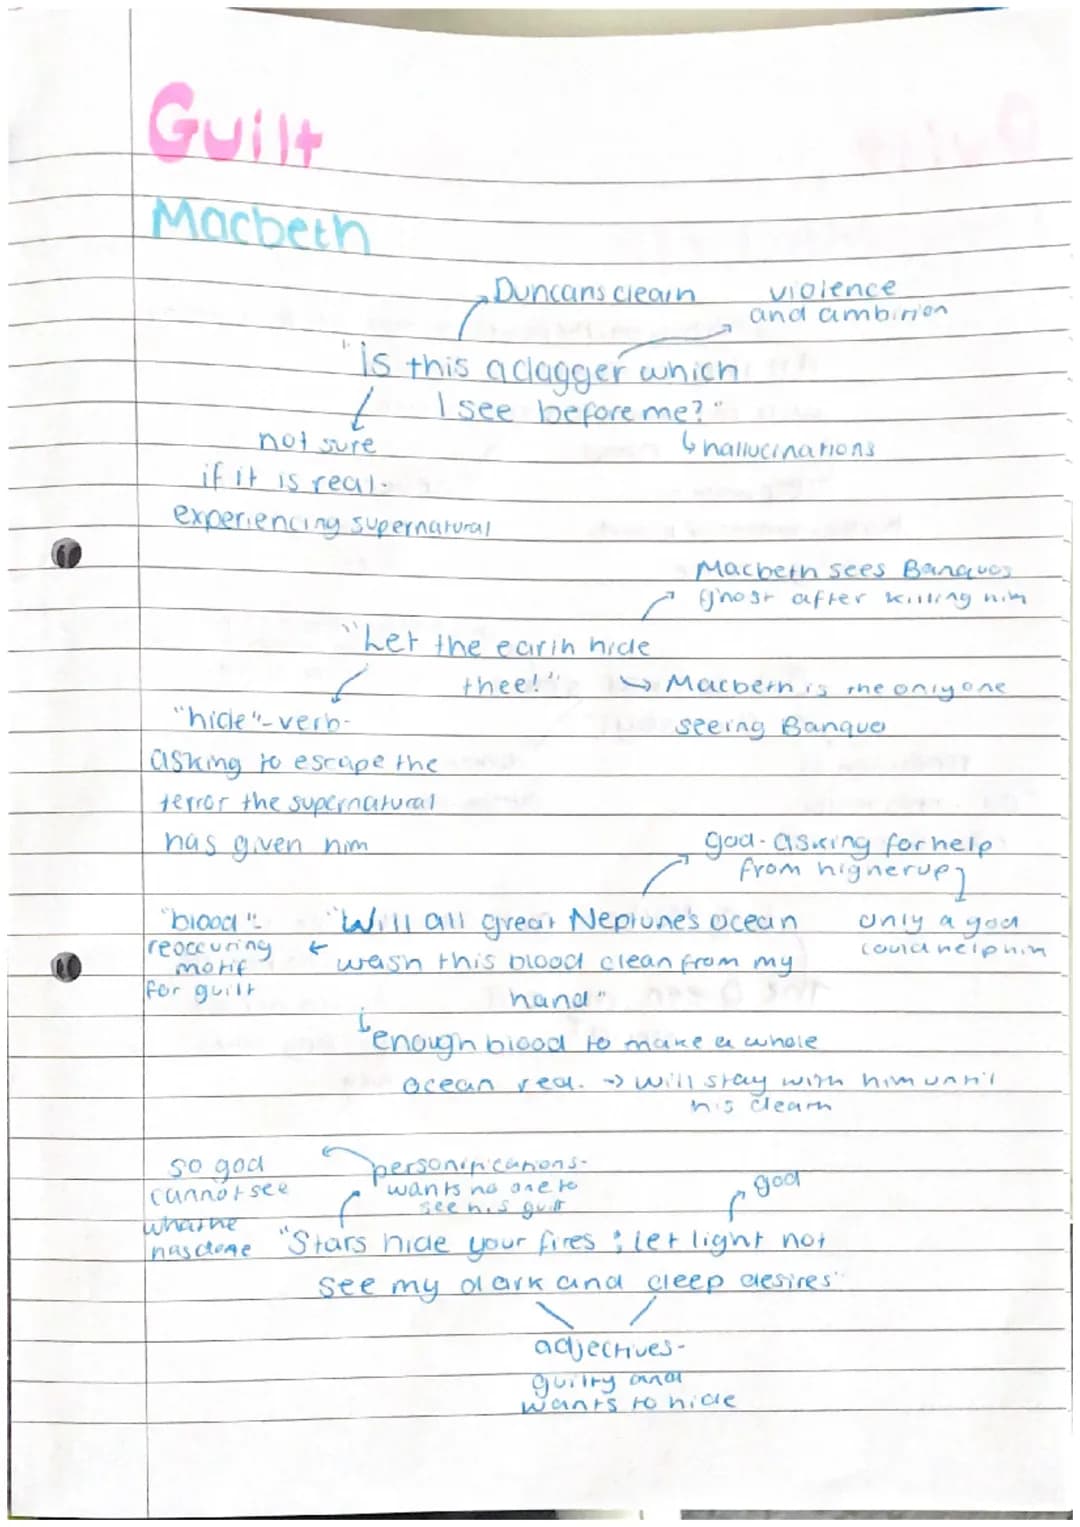 Guilt
Macbeth
Duncans death
violence
and ambition
"is this a dagger which
I see before me?"
not sure
if it is real-
experiencing supernatural
hallucinations
Macbeth sees Banquos
ghost after killing him
"Let the earth hide
thee!"
Macbeth is the only one
seeing Banquo
"hide"-verb-
asking to escape the
terror the supernatural
has given him
god-asking for help
from higher up
only a god
could help him
"blood":
reoccuring
motif
for guilt
"Will all great Neptune's ocean
wash this blood clean from my
hand"
enough blood to make a whole
ocean red. → will stay with him until
his death
so god
cannot see
what he
has done
personifications-
wants no one to
see his guilt
god
"Stars hide your fires; let light not
see my dark and deep desires"
adjectives-
guilty and
wants to hide